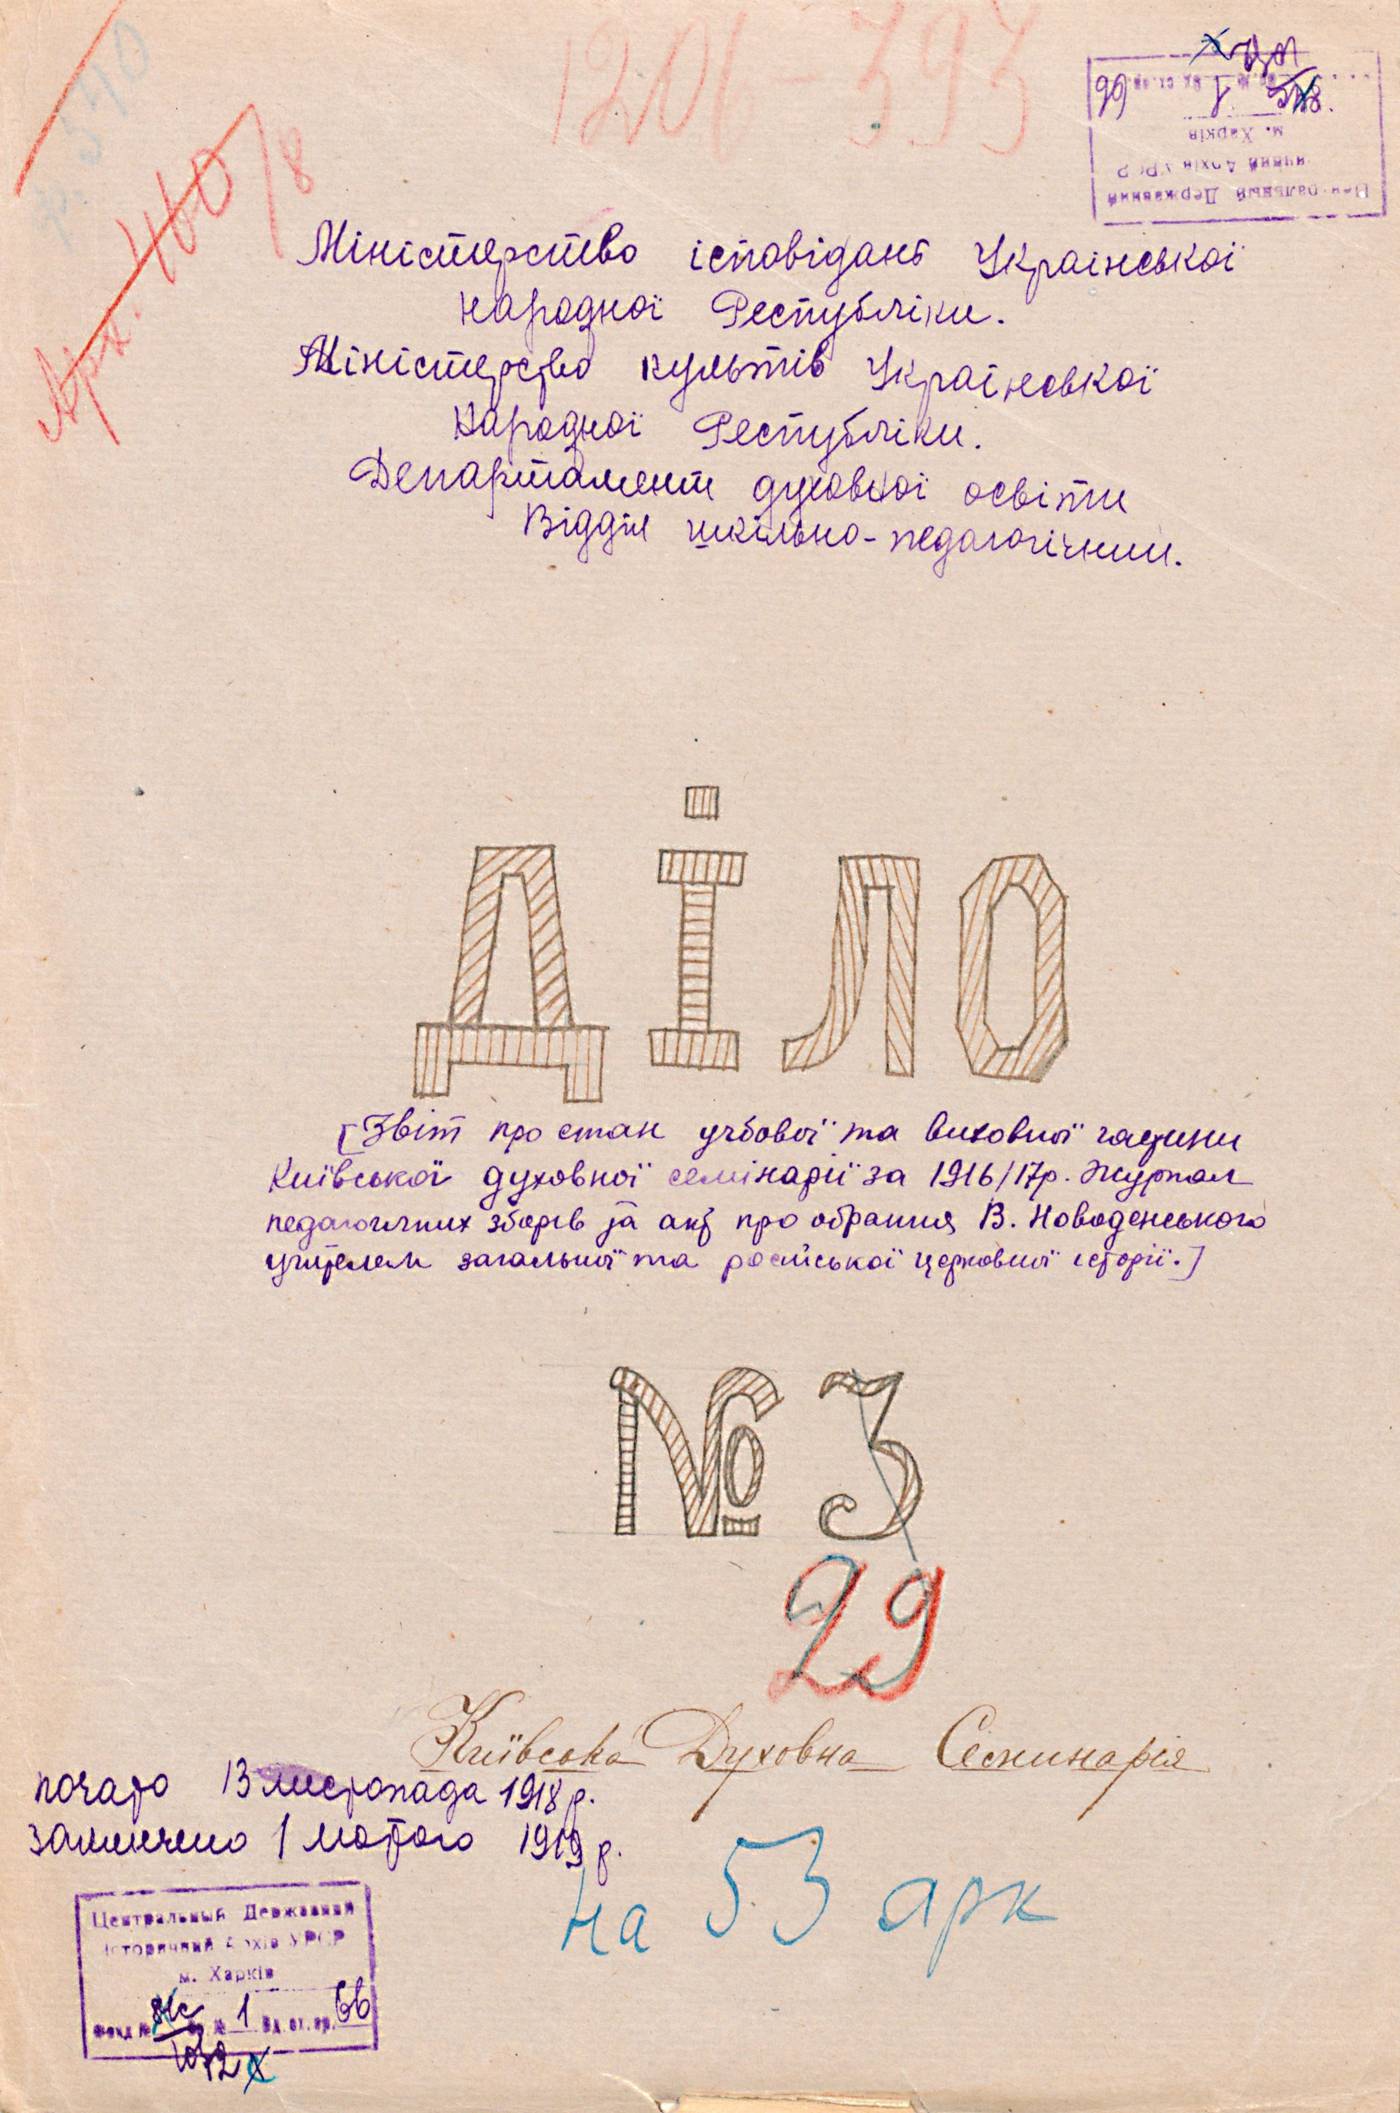 1201-393
Арк. 460/8
Міністерство ісповідань Української
Народної Республіки.
Міністерство культів Української
Народної Республіки.
Департамент духовної освіти
Відділ шкільно-педагогічний.
Діло
[Звіт про стан учбової та виховної частини
Київської духовної семінарії за 1916/17р. Журнал
педагогічних зборів та акт про обрання В.
учителем загальної та російської церковної історії.]
№ 3
29
Київська Духовна Семинарія
почато 13 листопада 1918 р.
закінчено 1 лютого 1919 р.
на 53 арк
Центральный Державний
історичний Архів УРСР
м. Харків
Фонд № оп. № 1 Од. зб. пр. 66
1072